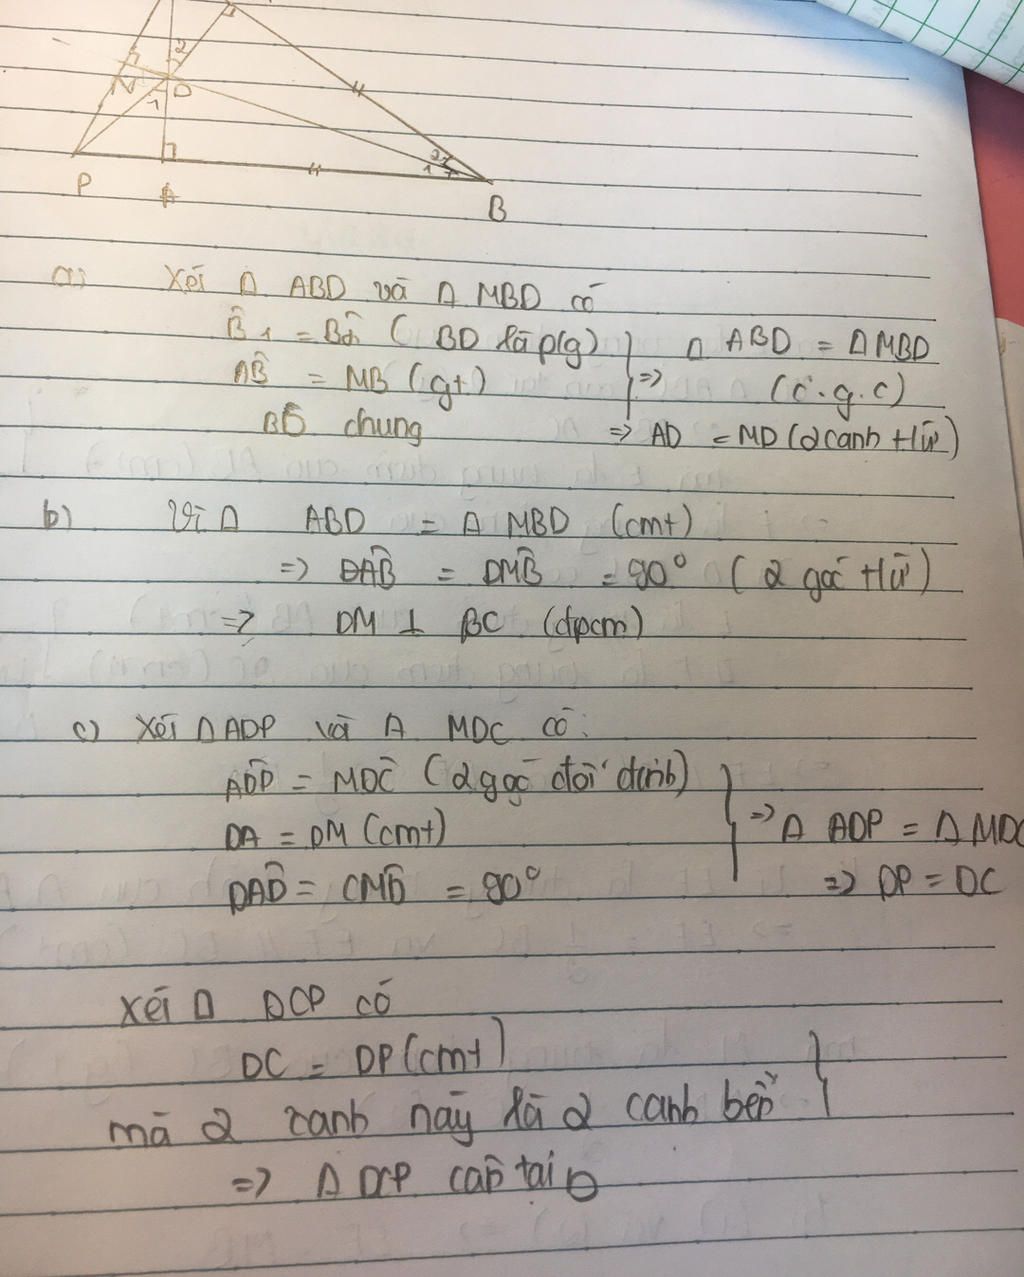 2
N
D
1
2
1
P
A
B
a) Xét Δ ABD và Δ MBD có
B̂1 = B̂2 ( BD là p(g)
AB̂ = MB (gt)
BD chung
⇒ Δ ABD = Δ MBD
(c.g.c)
⇒ AD = MD (2 canh + Iữ)
b) Vì Δ ABD = Δ MBD (cmt)
⇒ DAB̂ = DMB̂ = 90° ( 2 góc + Iữ)
⇒ DM ⊥ BC (đpcm)
c) Xét Δ ADP và Δ MDC có:
ADP̂ = MDĈ ( 2 góc đối đỉnh)
DA = DM (cmt)
PAD̂ = CMD̂ = 90°
⇒ Δ ADP = Δ MDC
⇒ DP = DC
Xét Δ DCP có
DC = DP (cmt)
mà 2 canh này là 2 canh bên
⇒ Δ DCP cân tại D